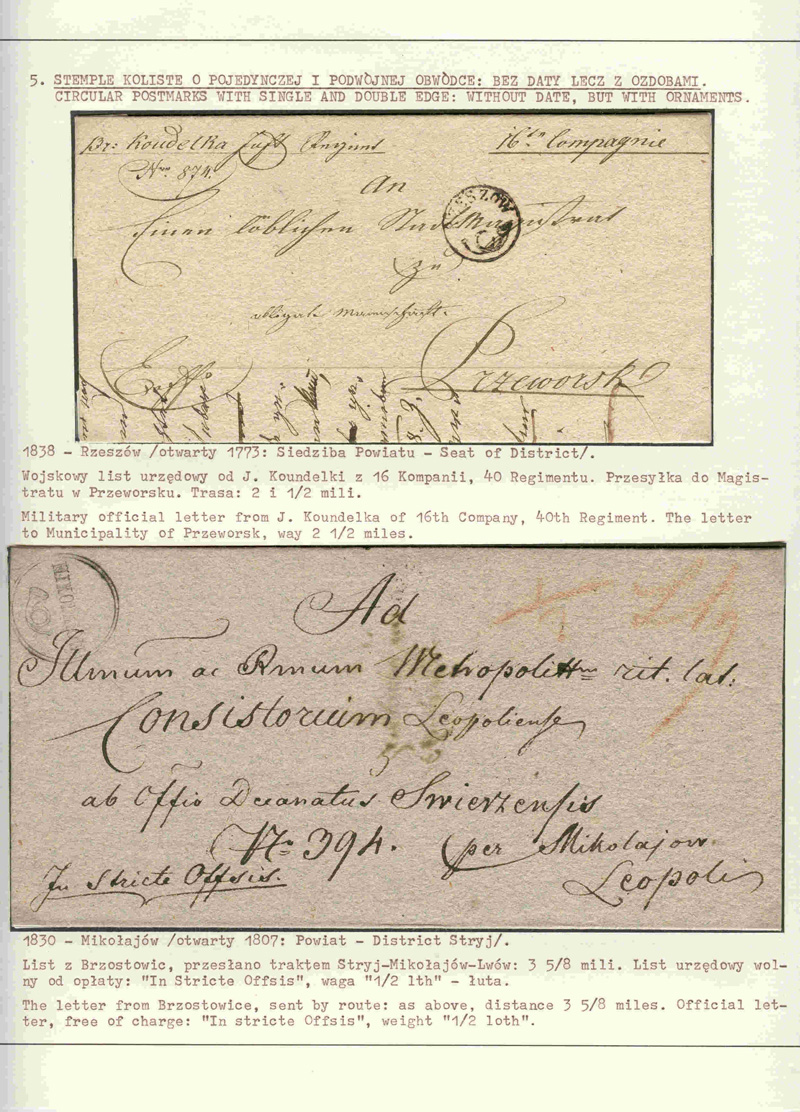 5. STEMPLE KOLISTE O POJEDYNCZEJ I PODWÒJNEJ OBWÒDCE: BEZ DATY LECZ Z OZDOBAMI.
CIRCULAR POSTMARKS WITH SINGLE AND DOUBLE EDGE: WITHOUT DATE, BUT WITH ORNAMENTS.
Pr: Koudelka Inft
16ten Compagnie
Nro 874.
An
Einen löblichen Stadtmagistrat
RZESZOW
zu
obligate Mannschaft.
Exoffo
Przeworsk
1838 - Rzeszów /otwarty 1773: Siedziba Powiatu - Seat of District/.
Wojskowy list urzędowy od J. Koundelki z 16 Kompanii, 40 Regimentu. Przesyłka do Magis-
tratu w Przeworsku. Trasa: 2 i 1/2 mili.
Military official letter from J. Koundelka of 16th Company, 40th Regiment. The letter
to Municipality of Przeworsk, way 2 1/2 miles.
Ad
Illmum ac Rmum Metropolittm rit. lat:
Consistorium Leopoliense
ab Offio Decanatus Swierzensis
No 394. per Mikolajow
In stricte Offsis. Leopoli
1830 - Mikołajów /otwarty 1807: Powiat - District Stryj/.
List z Brzostowic, przesłano traktem Stryj-Mikołajów-Lwów: 3 5/8 mili. List urzędowy wol-
ny od opłaty: "In Stricte Offsis", waga "1/2 lth" - łuta.
The letter from Brzostowice, sent by route: as above, distance 3 5/8 miles. Official let-
ter, free of charge: "In stricte Offsis", weight "1/2 loth".